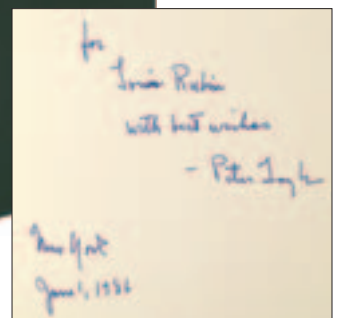 for
Louis Rubin
with best wishes
- Peter Taylor
New York
June 1, 1986